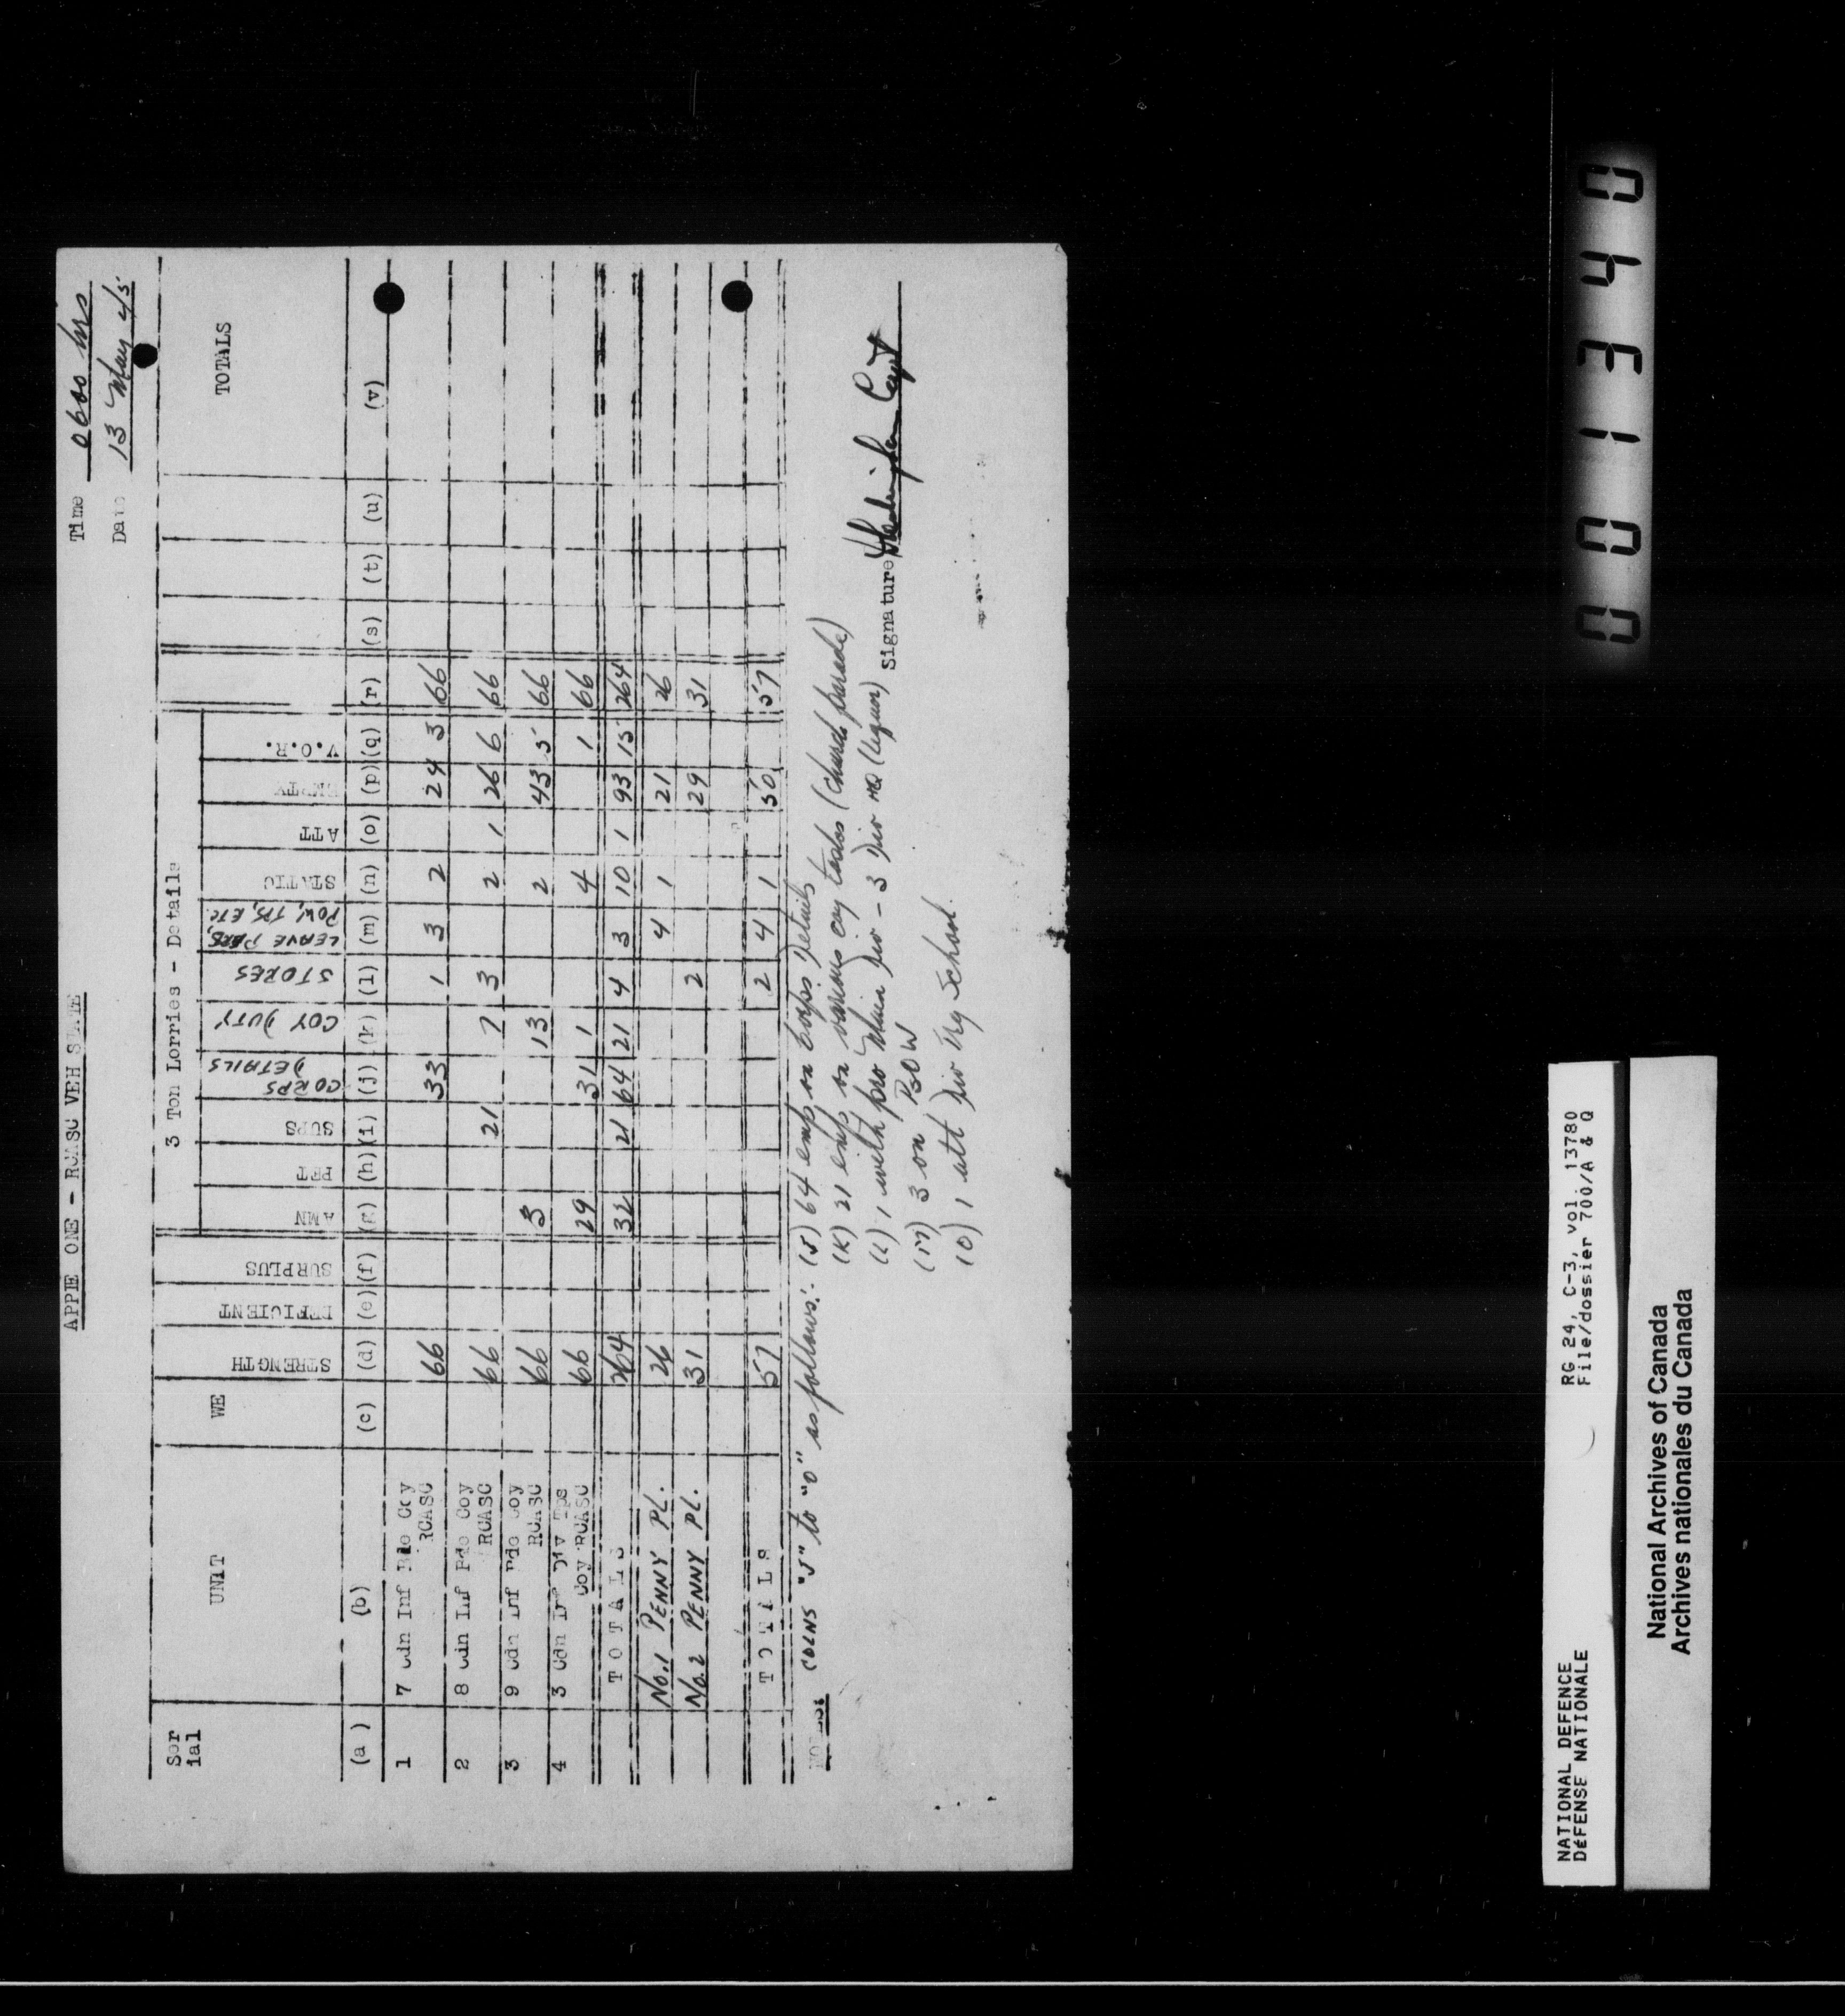 APPIE ONE - RCASC VEH STATE
Time 0600 hrs
Date 13 May 45
Ser ial UNIT WE STRENGTH DEFICIENT SURPLUS 3 Ton Lorries - Details TOTALS
AMN PET SUPS CORPS DETAILS COY DUTY STORES LEAVE PERS, POW, TPS, ETC. STATIC ATT EMPTY V.O.R.
(a) (b) (c) (d) (e) (f) (g) (h) (i) (j) (k) (l) (m) (n) (o) (p) (q) (r) (s) (t) (u) (v)
1 7 Cdn Inf Bde Coy RCASC 66 33 1 3 2 24 3 66
2 8 Cdn Inf Bde Coy RCASC 66 21 7 3 2 1 26 6 66
3 9 Cdn Inf Bde Coy RCASC 66 3 13 2 43 5 66
4 3 Cdn Inf Div Tps Coy RCASC 66 29 31 1 4 1 66
TOTALS 264 32 21 64 21 4 3 10 1 93 15 264
No.1 PENNY PL. 26 4 1 21 26
No.2 PENNY PL. 31 2 29 31
TOTALS 57 2 4 1 50 57
NOTES: COLNS "J" to "O" as follows:- (J) 64 emp on Corps Details
(K) 21 emp on various coy tasks (Church parade)
(L) 1 with pro Main Div - 3 Div HQ (liquor)
(M) 3 on PsOW
(O) 1 att Div Trg School.
Signature Capt
001340
NATIONAL DEFENCE RG 24, C-3, vol. 13780
DÉFENSE NATIONALE File/dossier 700/A & Q
National Archives of Canada
Archives nationales du Canada